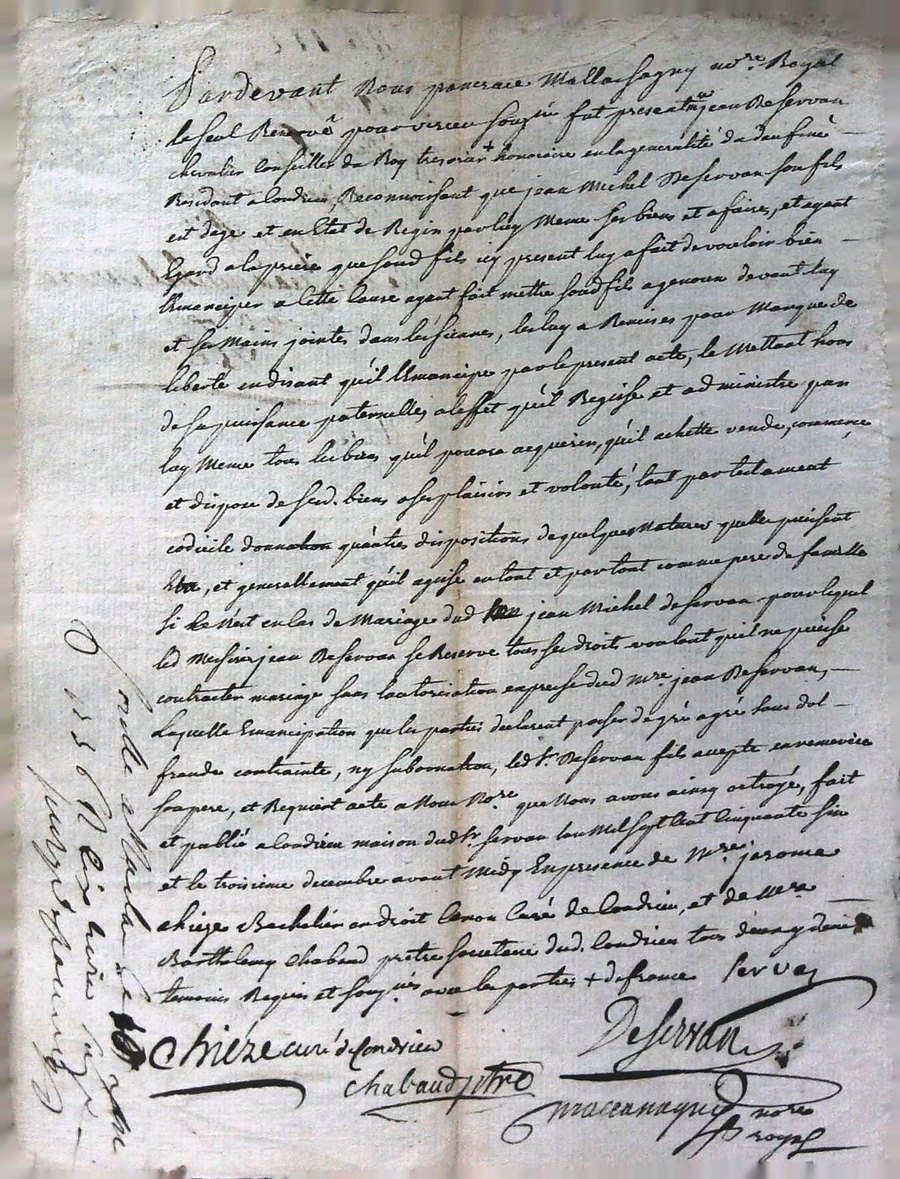 Pardevant Nous pancrace Mallassagny nore. Royal
le seul Reservé pour virieu sousné. fut present mre jean De servan
chevalier Conseiller du Roy tresorier + honoraire en la generalité du daufiné
Residant a Condrieu, Reconnoissant que jean Michel De servan son fils
est dage et en Etat de Regir par luy Meme ses biens et afaires, et ayant
Egard a la priere que sond fils icy present luy a fait de vouloir bien
l'Emanciper a Cette Cause ayant fait mettre sond fils a genoux devant luy
et ses Mains jointes dans les siennes, les luy a Remises pour Marque de
liberté en disant qu'il l'Emancipe par le present acte, le Mettant hors
de sa puissance paternelle, a leffet qu'il Regisse et administre par
luy Meme tous les biens qu'il pourra acquerir, qu'il achette vende, commerce
et dispose de sesd. biens a ses plaisirs et volonté, tant par testament
codicile donnation qu'autres dispositions de quelques Natures quelles puissent
Etre, et generallement qu'il agisse en tout et par tout comme pere de famille
si ce N'est en cas de Mariage dud jean Michel de servan pour lequel
led Messire jean De servan se Reserve tous ses droits voulant qu'il ne puisse
contracter mariage sans lautorisation expresse dud mre. jean De servan,
Laquelle Emancipation que les parties declarent passer de gré a gré sans dol
fraude contrainte, ny subornation, led sr. De servan fils accepte en remercie
son pere, et Requiert acte a Nous Nore. que Nous avons ainsy octroyé, fait
et publié a Condrieu maison dud sr servan lan Mil sept Cent Cinquante six
et le troisieme decembre avant Midy En presence de Mre. jerome
chieze Bachelier en droit Canon Curé de Condrieu, et de Mre
Barthelemy Chabaud pretre societaire dud. Condrieu tous deux
temoins Requis et sousnés avec les parties + de france Servan
Chiéze curé de Condrieu
De Servan
Chabaud ptre
nore
royal